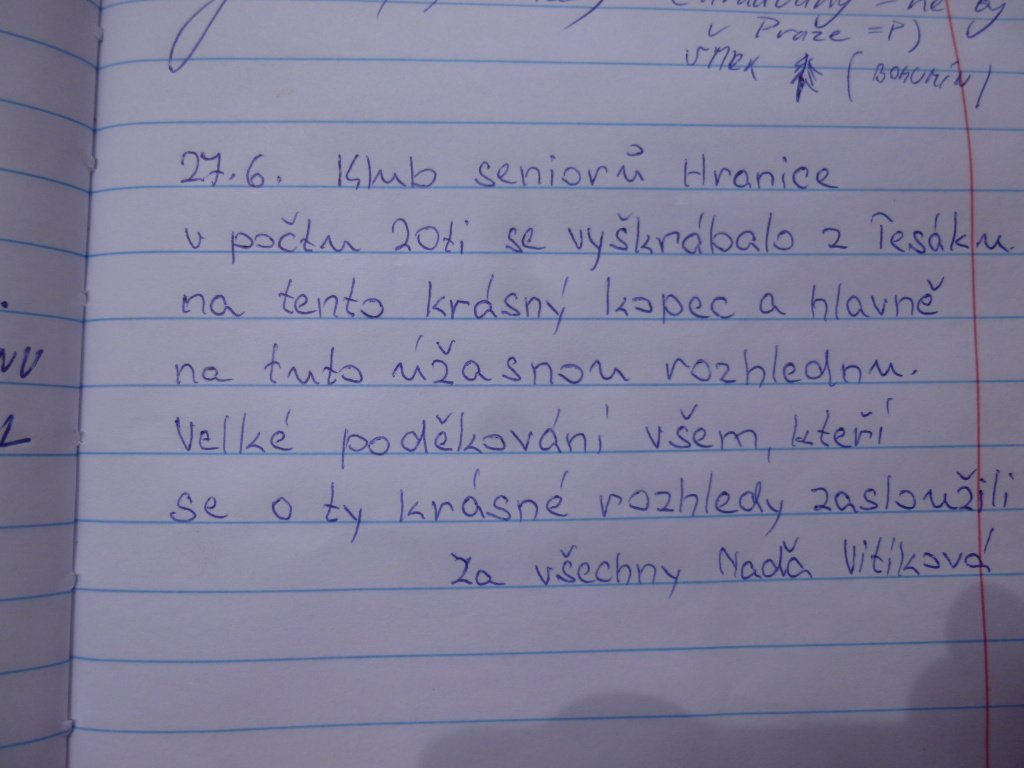 v Praže =P)
SMRK (BOHUMÍN)
27.6. Klub seniorů Hranice
v počtu 20ti se vyškrábalo z Tesáku
na tento krásný kopec a hlavně
na tuto úžasnou rozhlednu.
Velké poděkování všem, kteří
se o ty krásné rozhledy zasloužili
Za všechny Naďa Vitíková